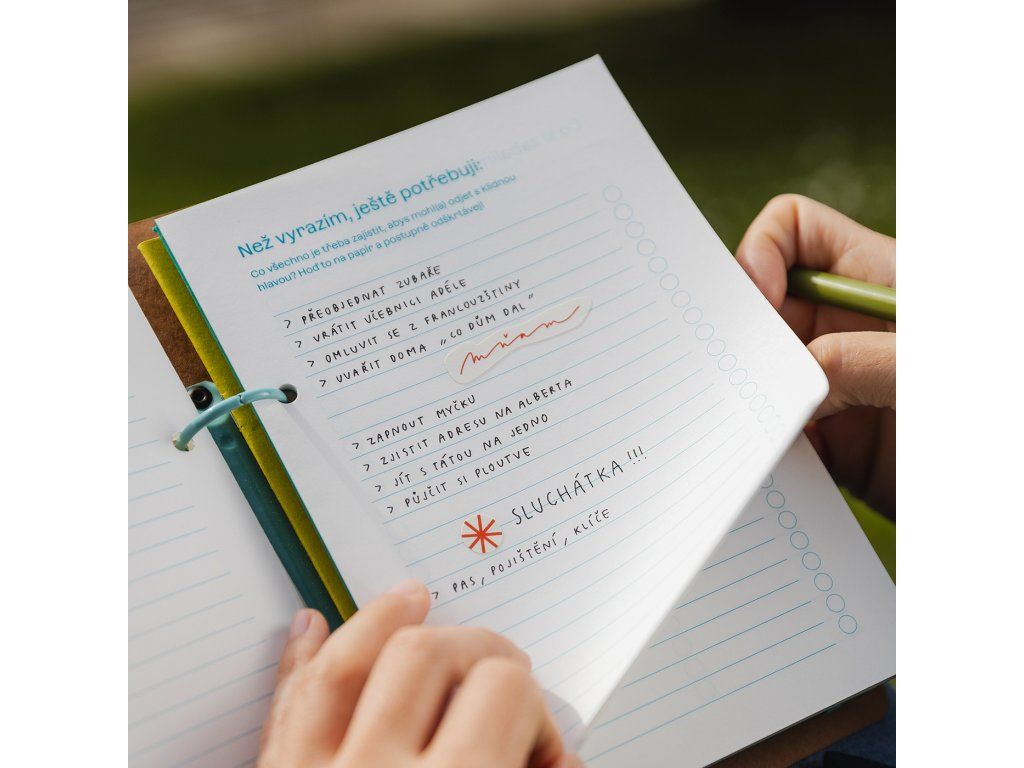 Než vyrazím, ještě potřebuji:
Co všechno je třeba zajistit, abys mohl(a) odjet s klidnou
hlavou? Hoď to na papír a postupně odškrtávej!
> PŘEOBJEDNAT ZUBAŘE
> VRÁTIT UČEBNICI ADÉLE
> OMLUVIT SE Z FRANCOUZŠTINY
> UVAŘIT DOMA „CO DŮM DAL"
mňam
> ZAPNOUT MYČKU
> ZJISTIT ADRESU NA ALBERTA
> JÍT S TÁTOU NA JEDNO
> PŮJČIT SI PLOUTVE
SLUCHÁTKA!!!
> PAS, POJIŠTĚNÍ, KLÍČE